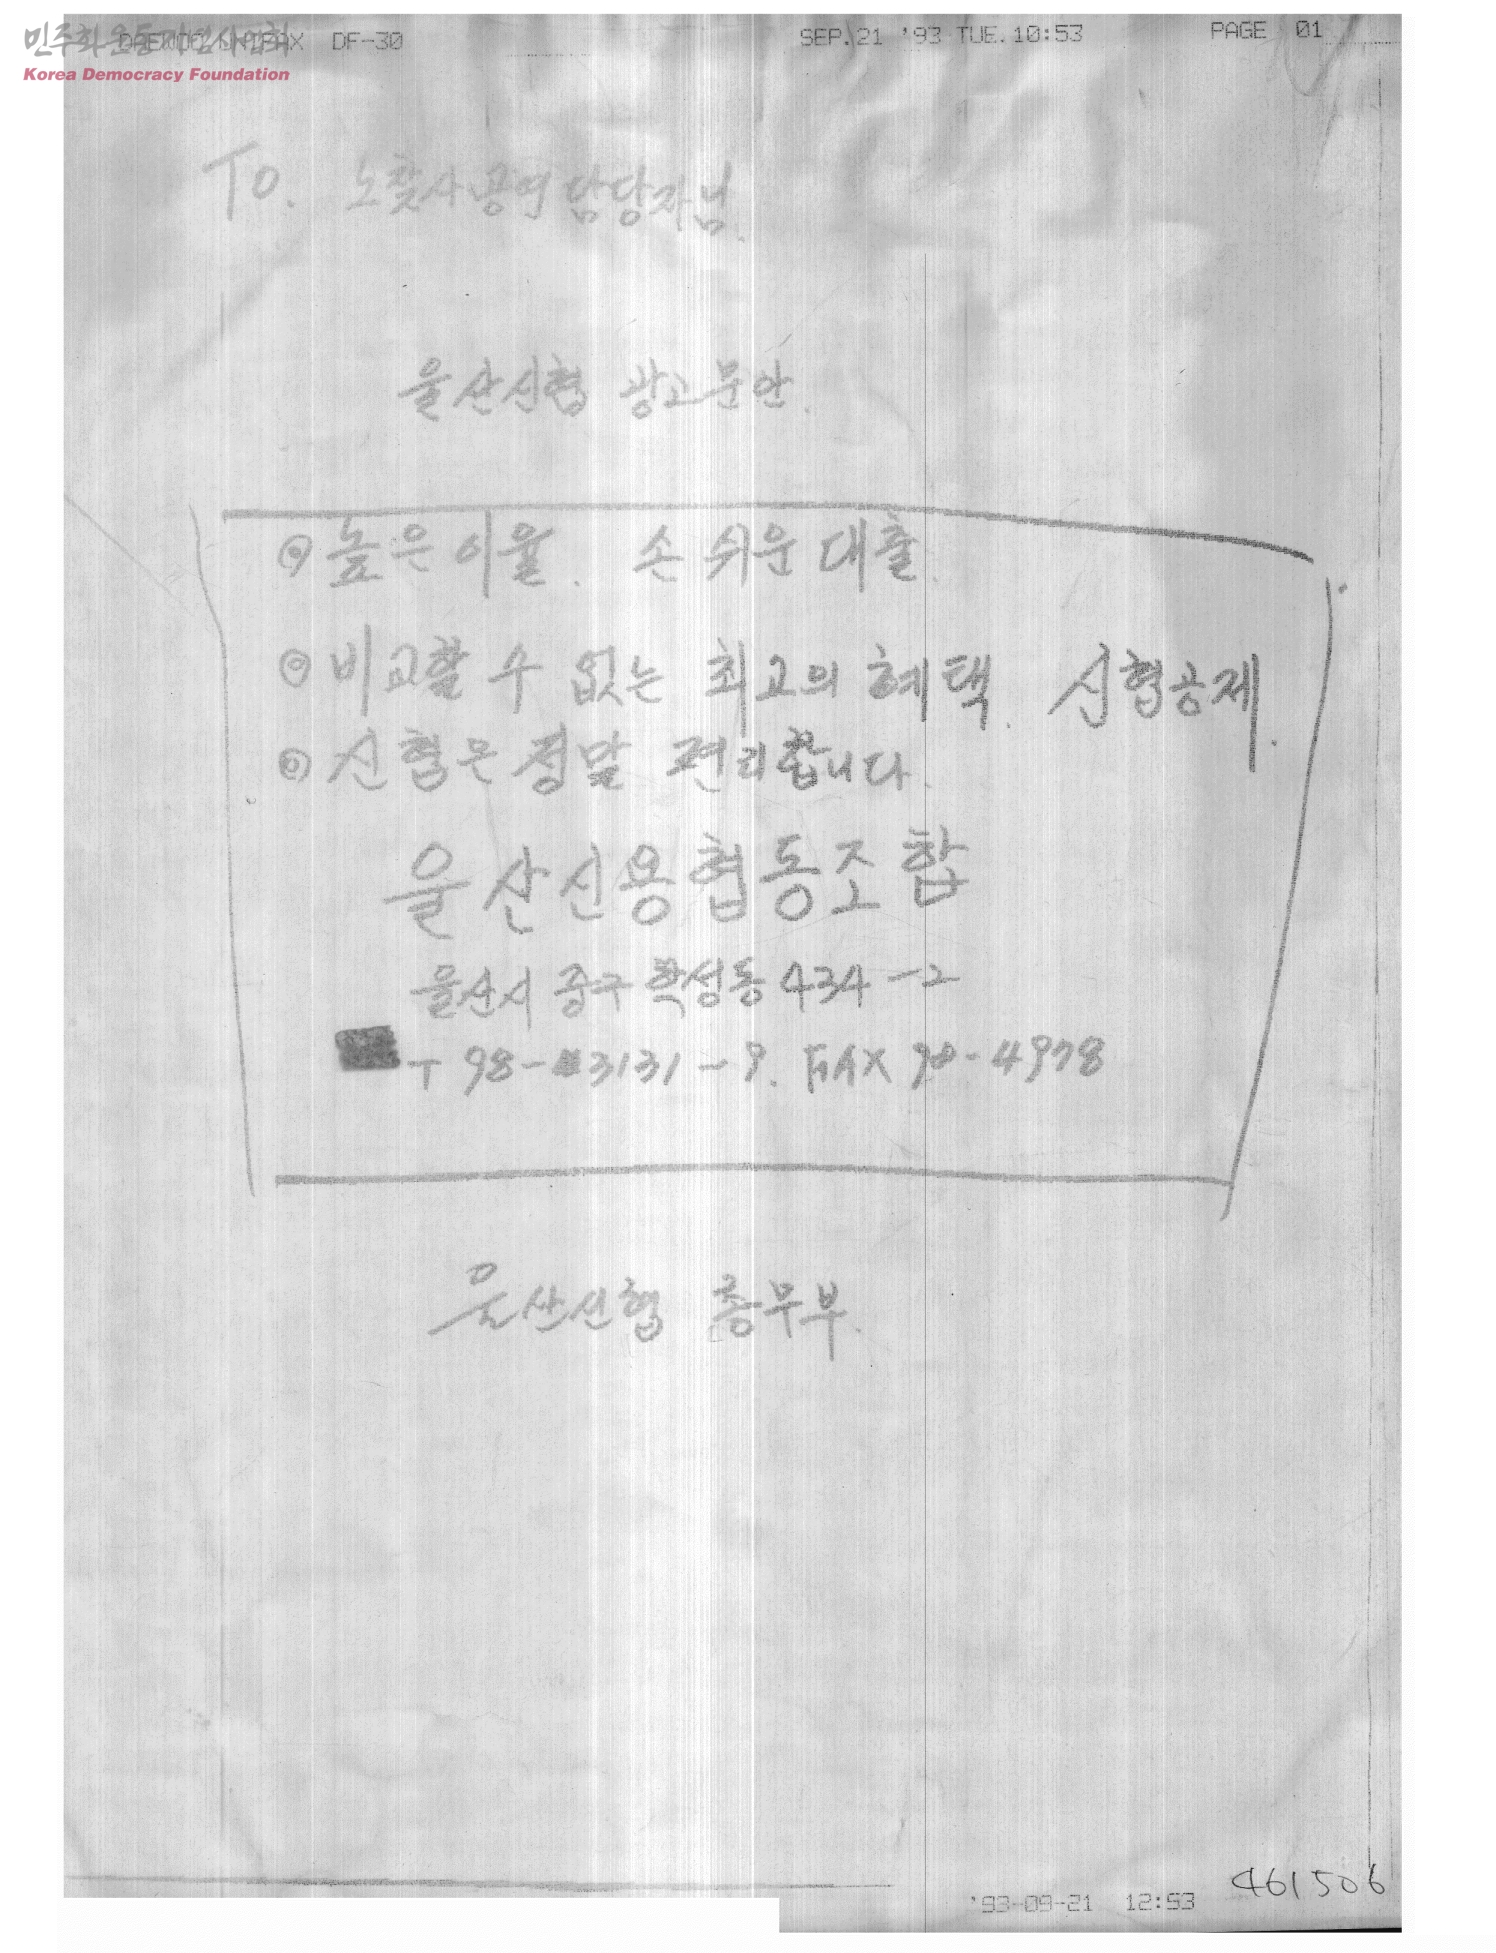 민주화운동기념사업회 DAEWOO UNIFAX DF-30 SEP.21 '93 TUE.10:53 PAGE 01
Korea Democracy Foundation
To. 노찾사공연담당자님.
울산신협 광고문안.
◎ 높은 이율. 손쉬운 대출.
◎ 비교할 수 없는 최고의 혜택. 신협공제.
◎ 신협은 정말 편리합니다.
울산신용협동조합
울산시 중구 학성동 434-2
T 98-3131-9. FAX 98-4978
울산신협 총무부.
'93-09-21 12:53 461506